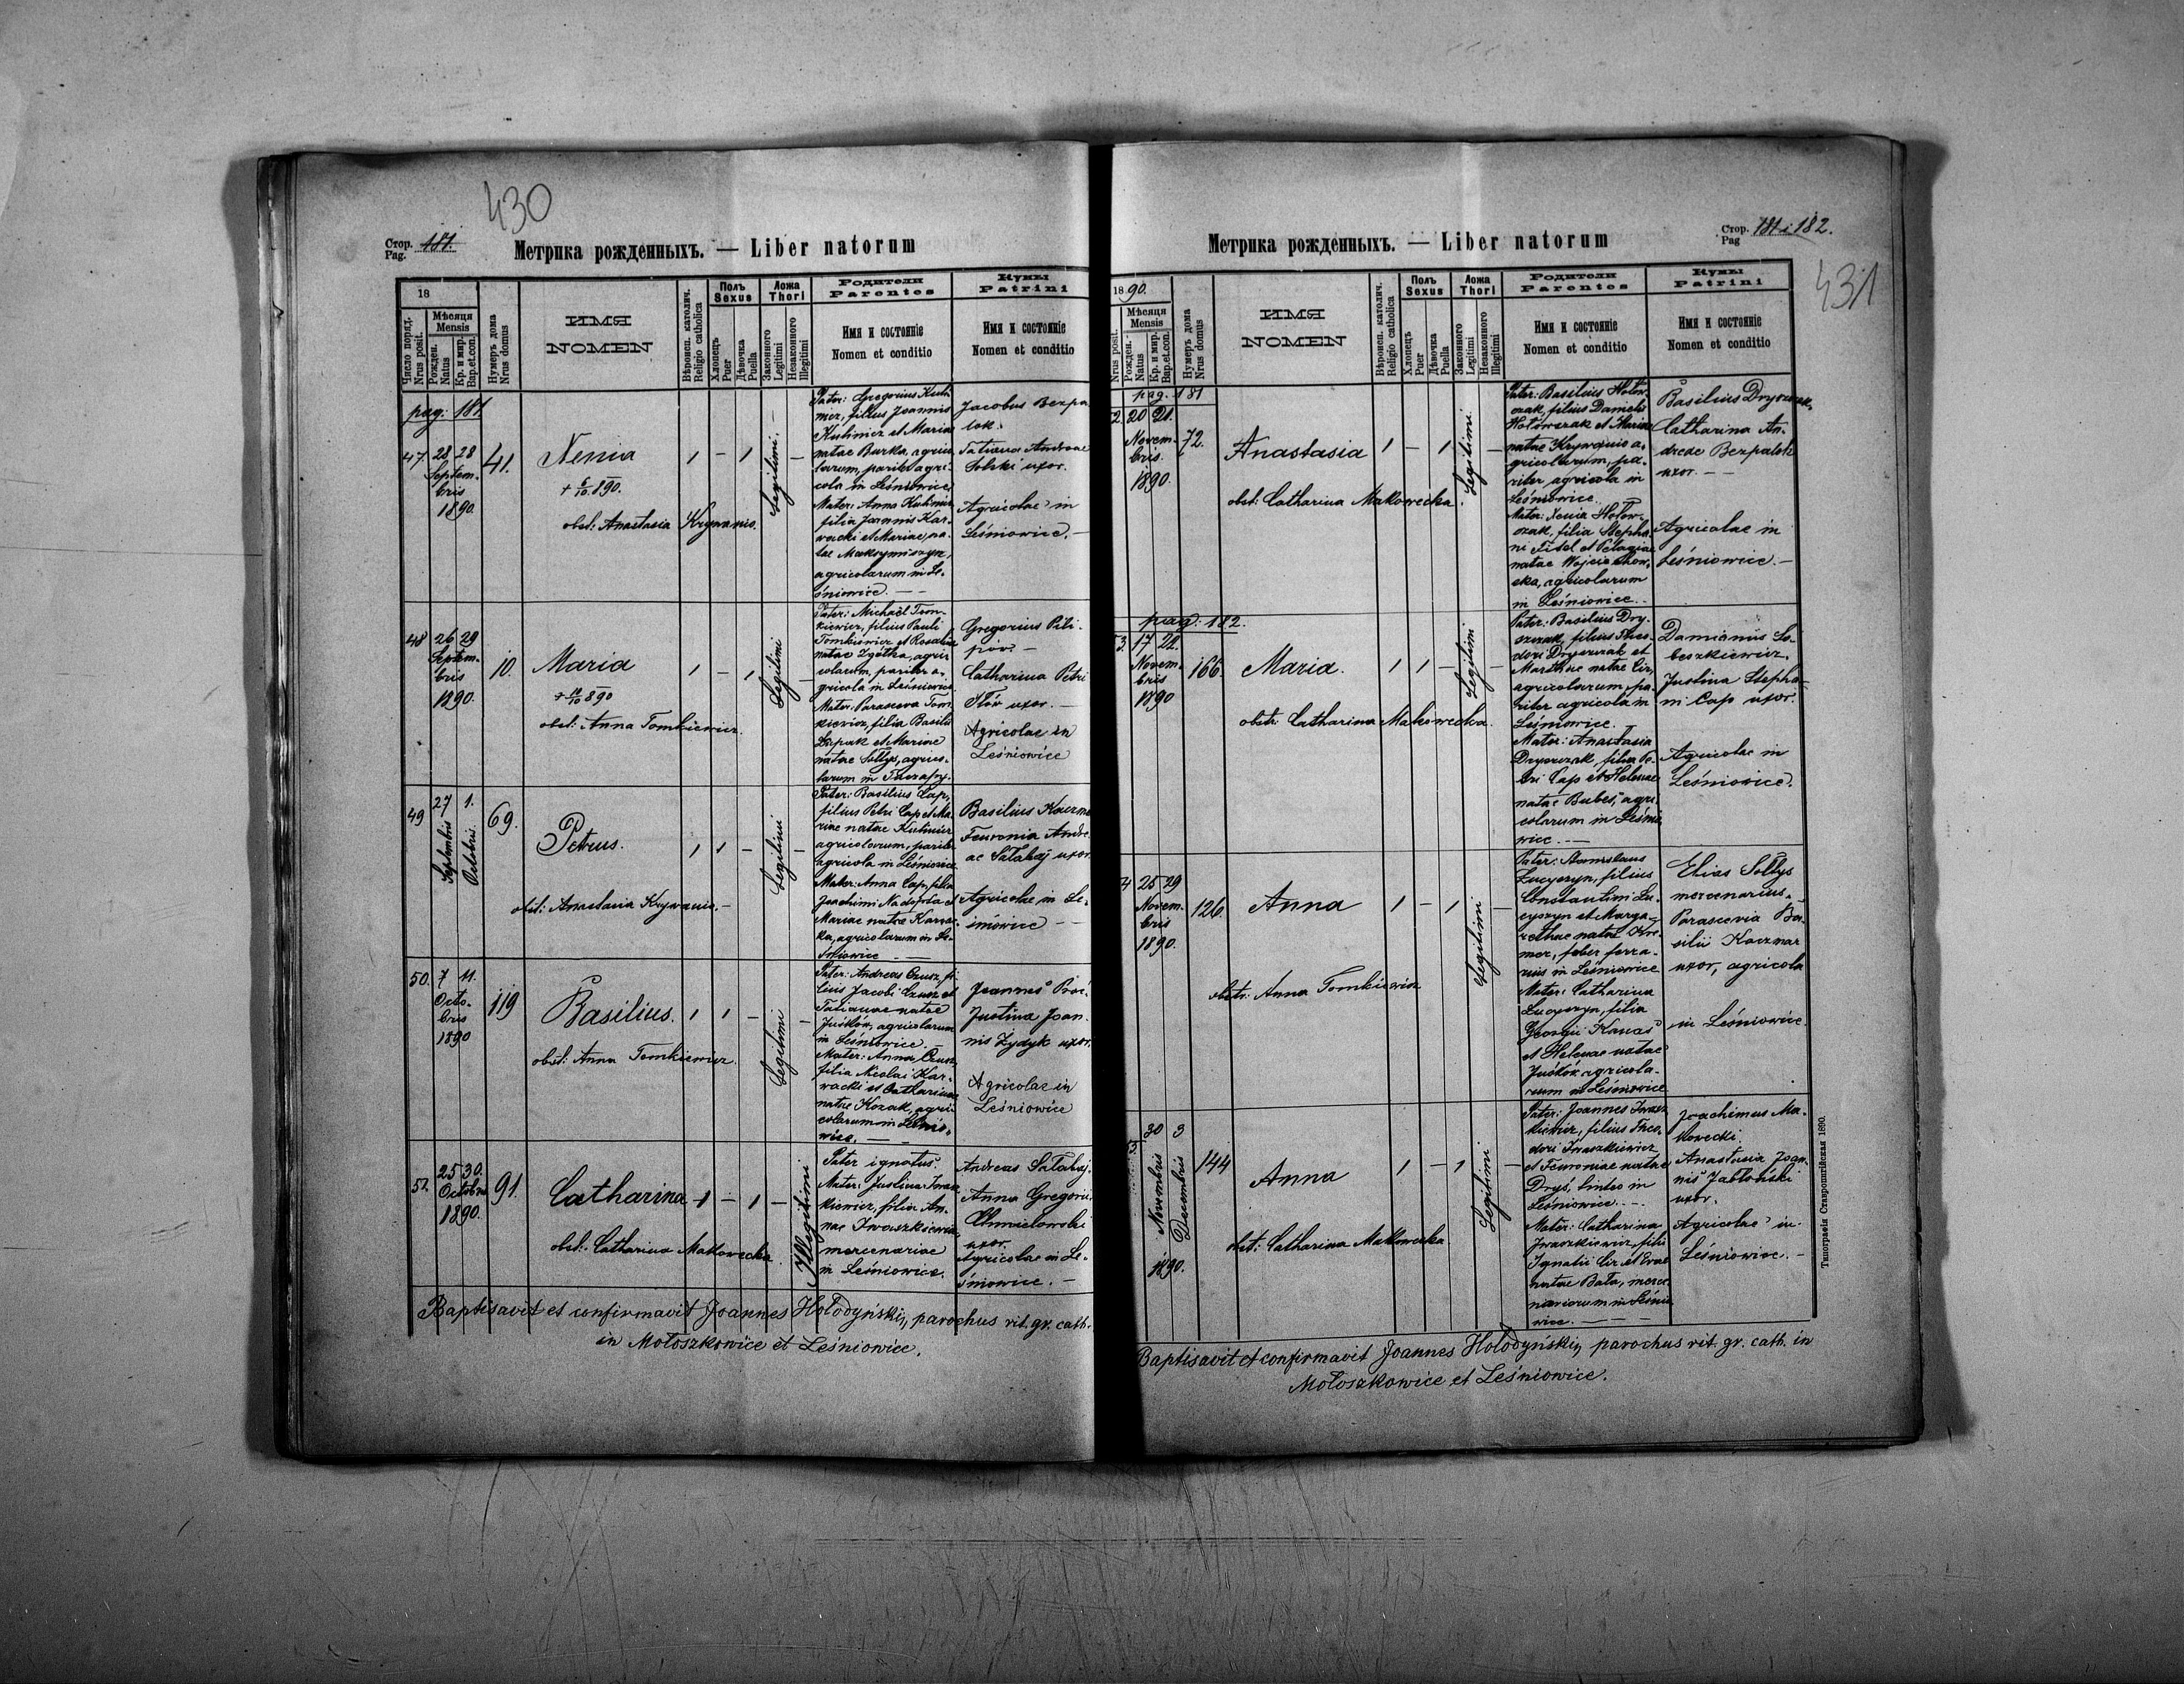 430
Стор.
Pag. 181.
Метрика рожденныхъ. — Liber natorum
18
Число поряд.
Nrus posit.
Мѣсяця
Mensis
Рожден.
Natus
Кр. и мир.
Bap. et con.
Нумеръ дома
Nrus domus
ИМЯ
NOMEN
Вѣроисп. католич.
Religio catholica
Полъ
Sexus
Хлопецъ
Puer
Дѣвочка
Puella
Ложа
Thori
Законного
Legitimi
Незаконного
Illegitimi
Родители
Parentes
Имя и состояніе
Nomen et conditio
Кумы
Patrini
Имя и состояніе
Nomen et conditio
pag: 181
47. 28 28
Septem-
bris
1890.
41.
Xenia
+ 6/10 890.
obst: Anastasia Krywanis.
1 - 1
Legitimi.
Pater: Gregorius Kuli
micz, filius Joannis
Kulinicz et Mariae
natae Burka, agrico
larum, pariter agri-
cola in Leśniowice
Mater: Anna Kulinicz
filia Joannis Kar-
wacki et Mariae, na-
tae Maksymiszyn,
agricolarum in Le-
śniowice. —
Jacobus Bezpa
lok.
Tatiana Andreae
Solski uxor.
Agricolae in
Leśniowice. —
48 26 29
Septem-
bris
1890.
10.
Maria
+ 10/10 890
obst: Anna Tomkiewicz.
1 - 1
Legitimi
Pater: Michael Tom-
kiewicz, filius Pauli
Tomkiewicz et Rosaliae
natae Zgótka, agri
colarum, pariter a-
gricola in Leśniowice
Mater: Parasceva Tom
kiewicz, filia Basilii
et Mariae
natae Sołtys, agrico-
larum in
Gregorius Pili-
pów. —
Catharina Petri
Flów uxor. —
Agricolae in
Leśniowice
49 27 1.
Septembris Octobris.
69.
Petrus.
obst: Anastasia Krywanis. —
1 1 -
Legitimi
Pater: Basilius Cap,
filius Petri Cap et Ma
riae natae Kulinicz
agricolarum, pariter
agricola in Leśniowice
Mater: Anna Cap, filia
Joachimi et
Mariae natae
ka, agricolarum in Le-
śniowice —
Basilius Kaczmar
Feuronia Andre
ae Sałahaj uxor
Agricolae in Le-
śniowice —
50. 7 11.
Octo-
bris
1890
119
Basilius.
obst: Anna Tomkiewicz.
1 1 -
Legitimi
Pater: Andreas Czusz, fi
lius Jacobi Czusz et
Tatianae natae
Juśków, agricolarum
in Leśniowice. —
Mater: Anna Czusz,
filia Nicolai Kar-
wacki et Catharinae
natae Kozak, agri
colarum in Leśnio-
wice. —
Joannes Proć.
Justina Joan-
nis Żydyk uxor.
Agricolae in
Leśniowice
51. 25 30.
Octobris
1890.
91.
Catharina
obst: Catharina Makowecka.
1 - 1 -
Illegitimi
Pater ignotus.
Mater: Justina Iwasz
kiewicz, filia An-
nae Iwaszkiewicz,
mercenariae
in Leśniowice.
Andreas Sałahaj.
Anna Gregorii
Chmielowski
uxor.
Agricolae in Le-
śniowice. —
Baptisavit et confirmavit Joannes Hołodyński, parochus rit. gr. cath.
in Mołoszkowice et Leśniowice.
Метрика рожденныхъ. — Liber natorum
Стор.
Pag 181 i 182.
431
18 90.
Nrus posit.
Мѣсяця
Mensis
Рожден.
Natus
Кр. и мир.
Bap. et con.
Нумеръ дома
Nrus domus
ИМЯ
NOMEN
Вѣроисп. католич.
Religio catholica
Полъ
Sexus
Хлопецъ
Puer
Дѣвочка
Puella
Ложа
Thori
Законного
Legitimi
Незаконного
Illegitimi
Родители
Parentes
Имя и состояніе
Nomen et conditio
Кумы
Patrini
Имя и состояніе
Nomen et conditio
pag. 181
2. 20 21.
Novem-
bris.
1890.
72.
Anastasia
obst: Catharina Makowecka.
1 - 1 -
Legitimi.
Pater: Basilius Hołow-
czak, filius Danielis
Hołowczak et Mariae
natae Krywanis a-
gricolarum, pa-
riter agricola in
Leśniowice.
Mater: Xenia Hołow-
czak, filia Stepha-
ni Fidel et Pelagiae
natae Wojciechow-
ska, agricolarum
in Leśniowice.
Basilius Dryszczak,
Catharina An-
dreae Bezpalok
uxor. —
Agricolae in
Leśniowice. —
pag. 182.
3. 17 22.
Novem-
bris
1890
166.
Maria.
obstr: Catharina Makowecka.
1 1 -
Legitimi
Pater: Basilius Dry-
szczak, filius Theo-
dori Dryszczak et
Marthae natae Cir,
agricolarum, pa-
riter agricola in
Leśniowice.
Mater: Anastasia
Dryszczak, filia Pe-
tri Cap et Helenae
natae Bubes, agri-
colarum in Leśnio
wice. —
Damianus So-
beszkiewicz.
Justina Stepha-
ni Cap uxor.
Agricolae in
Leśniowice.
4 25 29
Novem-
bris
1890.
126.
Anna
obstr: Anna Tomkiewicz
1 - 1 -
Legitimi
Pater: Stanislaus
Łucyszyn, filius
Constantini Łu-
cyszyn et Marga-
rethae natae Kre-
mer, faber ferra-
rius in Leśniowice
Mater: Catharina
Łucyszyn, filia
Georgii Kanas
et Helenae natae
Juśków agricola-
rum in Leśniowice
Elias Sołtys
mercenarius. —
Parascevia Ba-
silii Kaczmar
uxor, agricola
in Leśniowice.
30 3
Novembris Decembris
1890.
144
Anna
obst: Catharina Makowecka
1 - 1 -
Legitimi
Pater: Joannes Iwasz
kiewicz, filius Theo-
dori Iwaszkiewicz
et Feuroniae natae
Dryś, in
Leśniowice. —
Mater: Catharina
Iwaszkiewicz, filia
Ignatii Cir et Evae
natae Bała, merce
nariorum in Leśnio
wice. —
Joachimus Ma-
kowecki.
Anastasia Joan-
nis Jabłoński
uxor.
Agricolae in
Leśniowice. —
Baptisavit et confirmavit Joannes Hołodyński, parochus rit. gr. cath. in
Mołoszkowice et Leśniowice.
Типографія Ставропигійская 1890.